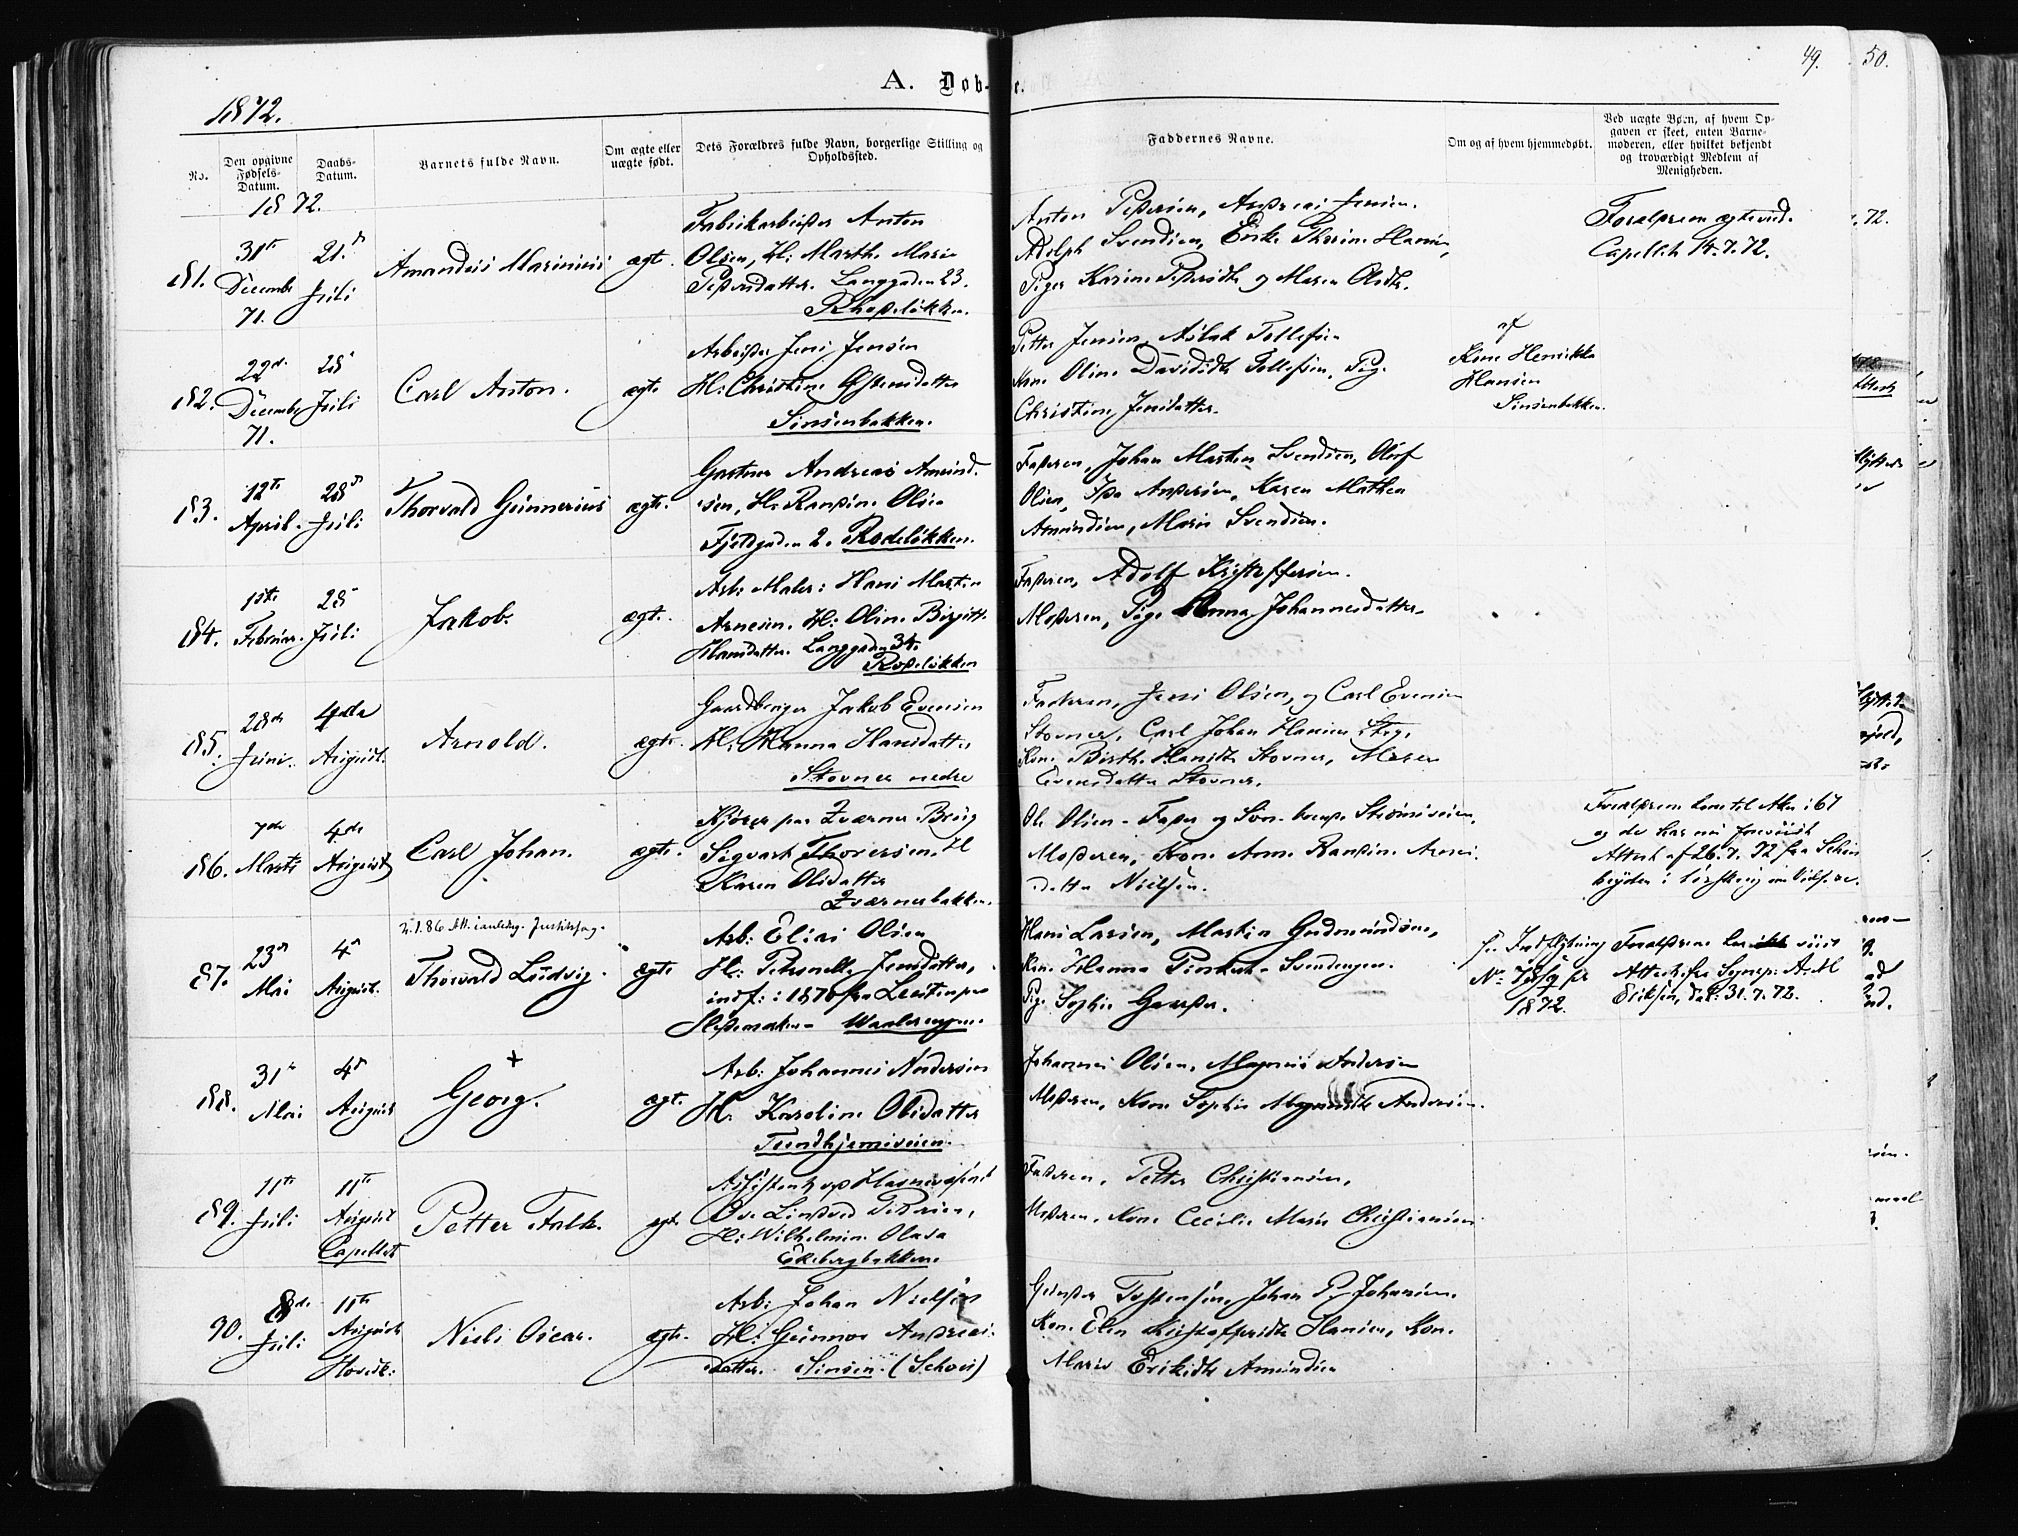 49. 50.
A. Døb-te.
1872.
No.
Den opgivne Fødsels-Datum.
Daabs-Datum.
Barnets fulde Navn.
Om ægte eller uægte født.
Dets Forældres fulde Navn, borgerlige Stilling og Opholdssted.
Faddernes Navne.
Om og af hvem hjemmedøbt.
Ved uægte Børn, af hvem Opgaven er skeet, enten Barnemoderen, eller hvilket bekjendt og troværdigt Medlem af Menigheden.
1872.
181.
31te Decembr 71.
21de Juli
Amandus Marinius
ægt.
Fabrikarbeider Anton
Olsen, H: Marthe Marie
Pedersdatter. Langgaden 23.
Rodeløkken.
Anton Pedersen, Andreas Jensen.
Adolph Svendsen, Enke Thrine Hansen,
Piger Karine Pedersdtr og Maren Olsdtr.
Forældrene ægteviede
Capellet 14.7.72.
182.
22de Decembr 71.
28 Juli
Carl Anton.
ægte
Arbeider Jens Jensen
H: Christine
Sinsenbakken.
Petter Jensen, Aslak Tollefsen
Kone Oline Davidsdtr Tollefsen, Pige
Christine Jensdatter.
af
Kone Henrikke
Hansen
Sinsenbakken.
183.
12te April.
28de Juli
Thorvald Gunnerius
ægte.
Gartner Andreas Amund-
sen, H: Randine Olsen
Fjeldgaden 2. Rodeløkken.
Faderen, Johan Martin Svendsen, Oluf
Olsen, Ida Andersen, Karen Mathea
Amundsen, Marie Svendsen.
184.
Februar.
28 Juli
Jakob.
ægt.
Arb: Maler: Hans Martin
Arnesen. H: Oline Birgitte
Hansdatter. Langgaden 34.
Rodeløkken
Faderen, Adolf Kristoffersen.
Moderen, Pige Anna Johannesdatter.
185.
28de Juni.
4de August.
Arnold.
ægte.
Gaardbruger Jakob Evensen
H: Hanna Hansdatter
Stovner nedre
Faderen, Jens Olsen, og Carl Evensen
Stovner, Carl Johan Hansen
Kone Birthe Hansdtr Stovner, Maren
Evensdatter Stovner.
186.
7de Marts
4de August
Carl Johan.
ægte.
Kjører paa Kværner Brug
Sigvart Thoresen. H
Karen Olsdatter
Kværnerbakken.
Ole Olsen - Fader og Søn - begge Strømsveien,
Moderen, Kone Anne Randine Arnes-
datter Nielsen.
Forældrene kom til Aker i 67
Attest af 26.7.72 fra
87.
23de Mai
4de August.
2.1.86 Att. i anledng. Justitssag.
Thorvald Ludvig.
ægte
Arb: Elias Olsen
H: Petronelle Jensdatter,
indf: i 1870 fra Leuten paa
Hedemarken - Waalerengen.
Hans Larsen, Martin Gudmundsen,
Kone Hanna
Pige Sophie
1872.
Forældrene
Attest fra Sognep: A. M
Eriksen, dat: 31.7.72.
188.
31te Mai
4de August
+
Georg.
ægt.
Arb: Johannes Andersen
H. Karoline Olsdatter
Trondhjemsveien.
Johannes Olsen, Magnus Andersen
Moderen, Kone Sophie Magnusdtr Andersen.
89.
11te Juli
11te August Capellet
Petter Falk.
ægt.
Assistent ved
Ove Lindved Pedersen,
H: Wilhelmine Olava
Ekebergbakken.
Faderen, Petter Christiansen,
Moderen, Kone Cecilie Marie Christiansen
90.
8de Juli
11te August Hovedk:
Nils Oscar.
ægte.
Arb: Johan Nielsen
H: Gunnor Andreas-
datter. Sinsen. (Schous)
Gunder Torstensen, Johan P. Johansen.
Kone Elen Kristoffersdtr Hansen, Kone
Maria Eriksdtr Amundsen